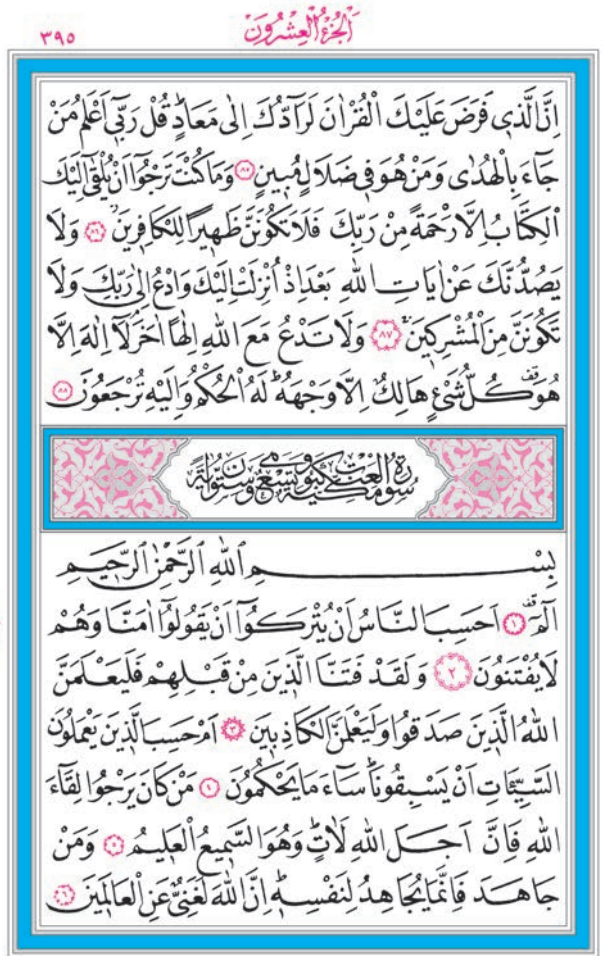 ٣٩٥ اَلْجُزْءُ الْعِشْرُونَ
اِنَّ الَّذٖى فَرَضَ عَلَيْكَ الْقُرْاٰنَ لَرَٓادُّكَ اِلٰى مَعَادٍؕ قُلْ رَبّٖٓى اَعْلَمُ مَنْ
جَٓاءَ بِالْهُدٰى وَمَنْ هُوَ فٖى ضَلَالٍ مُبٖينٍ ﴿٨٥﴾ وَمَا كُنْتَ تَرْجُٓوا اَنْ يُلْقٰٓى اِلَيْكَ
الْكِتَابُ اِلَّا رَحْمَةً مِنْ رَبِّكَ فَلَا تَكُونَنَّ ظَهٖيرًا لِلْكَافِرٖينَؗ ﴿٨٦﴾ وَلَا
يَصُدُّنَّكَ عَنْ اٰيَاتِ اللّٰهِ بَعْدَ اِذْ اُنْزِلَتْ اِلَيْكَ وَادْعُ اِلٰى رَبِّكَ وَلَا
تَكُونَنَّ مِنَ الْمُشْرِكٖينَۚ ﴿٨٧﴾ وَلَا تَدْعُ مَعَ اللّٰهِ اِلٰهًا اٰخَرَۘ لَٓا اِلٰهَ اِلَّا
هُوَ۠ كُلُّ شَیْءٍ هَالِكٌ اِلَّا وَجْهَهُؕ لَهُ الْحُكْمُ وَاِلَيْهِ تُرْجَعُونَ ﴿٨٨﴾
سُورَةُ الْعَنْكَبُوتِ مَكِّيَّةٌ وَهِىَ تِسْعٌ وَسِتُّونَ اٰيَةً
بِسْمِ اللّٰهِ الرَّحْمٰنِ الرَّحٖيمِ
الٓمٓۚ ﴿١﴾ اَحَسِبَ النَّاسُ اَنْ يُتْرَكُٓوا اَنْ يَقُولُٓوا اٰمَنَّا وَهُمْ
لَا يُفْتَنُونَ ﴿٢﴾ وَلَقَدْ فَتَنَّا الَّذٖينَ مِنْ قَبْلِهِمْ فَلَيَعْلَمَنَّ
اللّٰهُ الَّذٖينَ صَدَقُوا وَلَيَعْلَمَنَّ الْكَاذِبٖينَ ﴿٣﴾ اَمْ حَسِبَ الَّذٖينَ يَعْمَلُونَ
السَّيِّـَٔاتِ اَنْ يَسْبِقُونَاؕ سَٓاءَ مَا يَحْكُمُونَ ﴿٤﴾ مَنْ كَانَ يَرْجُوا لِقَٓاءَ
اللّٰهِ فَاِنَّ اَجَلَ اللّٰهِ لَاٰتٍؕ وَهُوَ السَّمٖيعُ الْعَلٖيمُ ﴿٥﴾ وَمَنْ
جَاهَدَ فَاِنَّمَا يُجَاهِدُ لِنَفْسِهٖؕ اِنَّ اللّٰهَ لَغَنِىٌّ عَنِ الْعَالَمٖينَ ﴿٦﴾